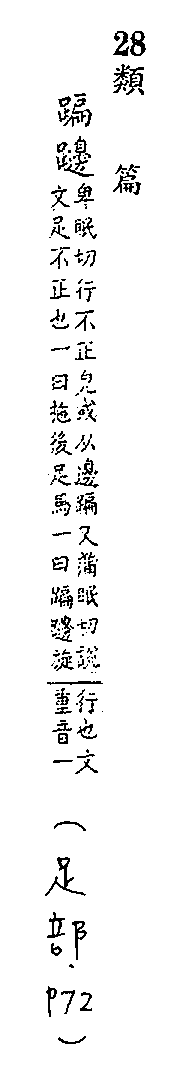 28類 篇
蹁𨇭卑眠切行不正皃或从邊蹁又蒲眠切說
文足不正也一曰拖後足馬一曰蹁𨇭旋
行也文
重音一
(足部.p72)